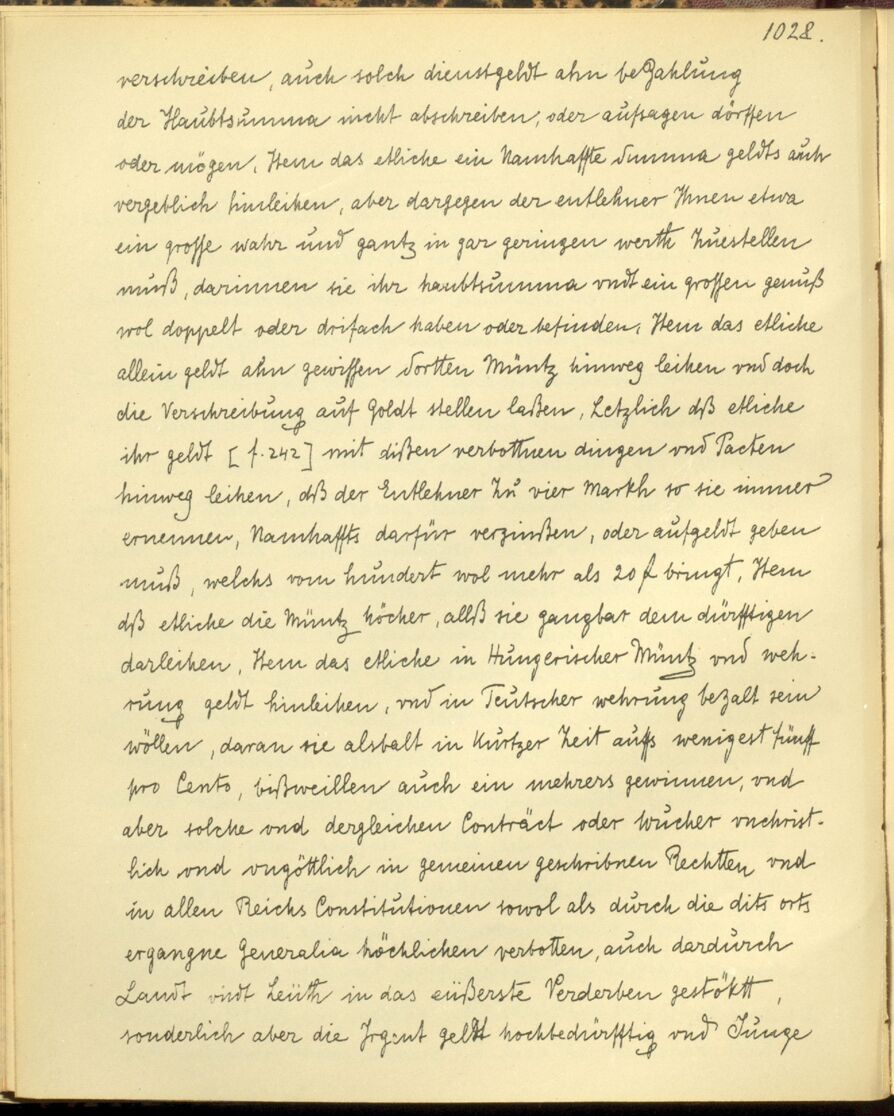 1028.
verschreiben, auch solch dienstgeldt ahn beZahlung
der Haubtsumma nicht abschreiben, oder aufsagen dörffen
oder mögen, Item das etliche ein Namhaffte Summa geldts auch
vergeblich hinleihen, aber dargegen der entlehner Ihnen etwa
ein grosse wahr und gantz in gar geringen werth Zuestellen
muß, darinnen sie ihr haubtsumma vndt ein grossen genuß
wol doppelt oder drifach haben oder befinden, Item das etliche
allein geldt ahn gewissen Sortten Müntz hinweg leihen vnd doch
die Verschreibung auf Goldt stellen laßen, Letzlich dß etliche
ihr geldt [f. 242] mit dißen verbottnen dingen vnd Pacten
hinweg leihen, dß der Entlehner Zu vier Markh so sie immer
ernennen, Namhaffts darfür verzinßen, oder aufgeldt geben
muß, welchs vom hundert wol mehr als 20 f bringt, Item
dß etliche die Müntz höcher, allß sie gangbar dem dürfftigen
darleihen, Item das etliche in Hungerischer Müntz vnd weh-
rung geldt hinleihen, vnd in Teutscher wehrung bezalt sein
wöllen, daran sie alsbalt in Kurtzer Zeit auffs wenigest fünff
pro Cento, bißweillen auch ein mehrers gewinnen, vnd
aber solche vnd dergleichen Conträct oder Wucher vnchrist-
lich vnd vngöttlich in gemeinen geschribnen Rechtten vnd
in allen Reichs Constitutionen sowol als durch die dits orts
ergangne Generalia höchlichen verbotten, auch dardurch
Landt vndt Leüth in das eüßerste Verderben gestöktt,
sonderlich aber die hochbedürfftig vnd Junge